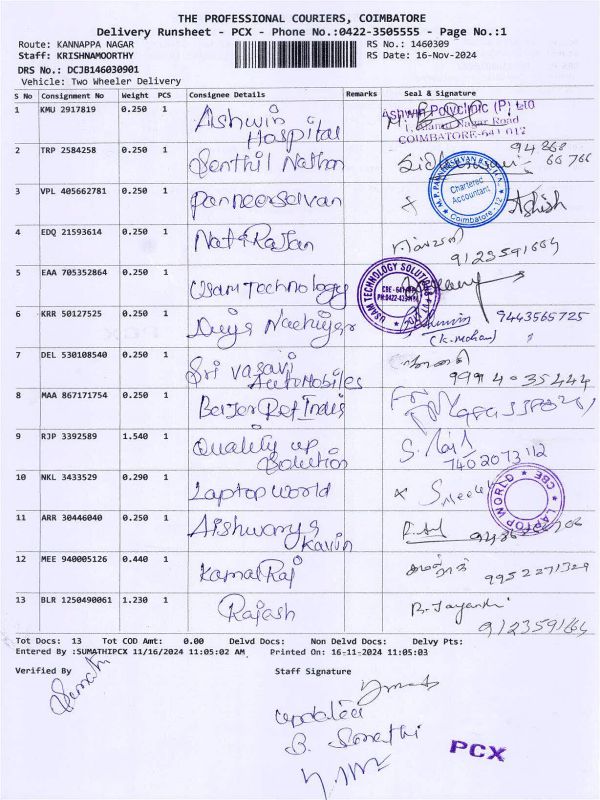 THE PROFESSIONAL COURIERS, COIMBATORE
Delivery Runsheet - PCX - Phone No.:0422-3505555 - Page No.:1
Route: KANNAPPA NAGAR
RS No.: 1460309
Staff: KRISHNAMOORTHY
RS Date: 16-Nov-2024
DRS No.: DCJB146030901
Vehicle: Two Wheeler Delivery
S No Consignment No Weight PCS Consignee Details Remarks Seal & Signature
1 KMU 2917819 0.250 1 Ashwin Hospital
Ashwin Polyclinic (P) Ltd
COIMBATORE-641 012
2 TRP 2584258 0.250 1 Senthil Nathan
3 VPL 405662781 0.250 1 Panneerselvan
Chartered Accountant
Coimbatore - 12
Ashish
4 EDQ 21593614 0.250 1 Natarajan
9123591664
5 EAA 705352864 0.250 1 Usam Technology
USAM TECHNOLOGY SOLUTIONS
6 KRR 50127525 0.250 1
9443565725
(K. Mohan)
7 DEL 530108540 0.250 1 Sri Vasavi Automobiles
99940 35444
8 MAA 867171754 0.250 1
9 RJP 3392589 1.540 1 Quality up Solution
7402073112
10 NKL 3433529 0.290 1 Laptop world
LAPTOP WORLD CBE
11 ARR 30446040 0.250 1 Aishwarya Kavin
12 MEE 940005126 0.440 1 Kamal Raj
9952271329
13 BLR 1250490061 1.230 1 Rajash
B. Jayanthi
9123591664
Tot Docs: 13 Tot COD Amt: 0.00 Delvd Docs: Non Delvd Docs: Delvy Pts:
Entered By :SUMATHIPCX 11/16/2024 11:05:02 AM Printed On: 16-11-2024 11:05:03
Verified By
Staff Signature
Sumathi
updated
B. Sumathi
PCX